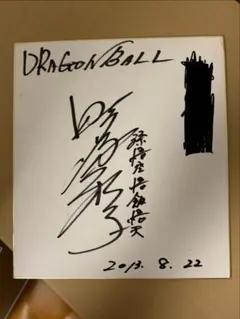 DRAGON BALL
野沢雅子
孫悟空悟飯悟天
2013. 8. 22